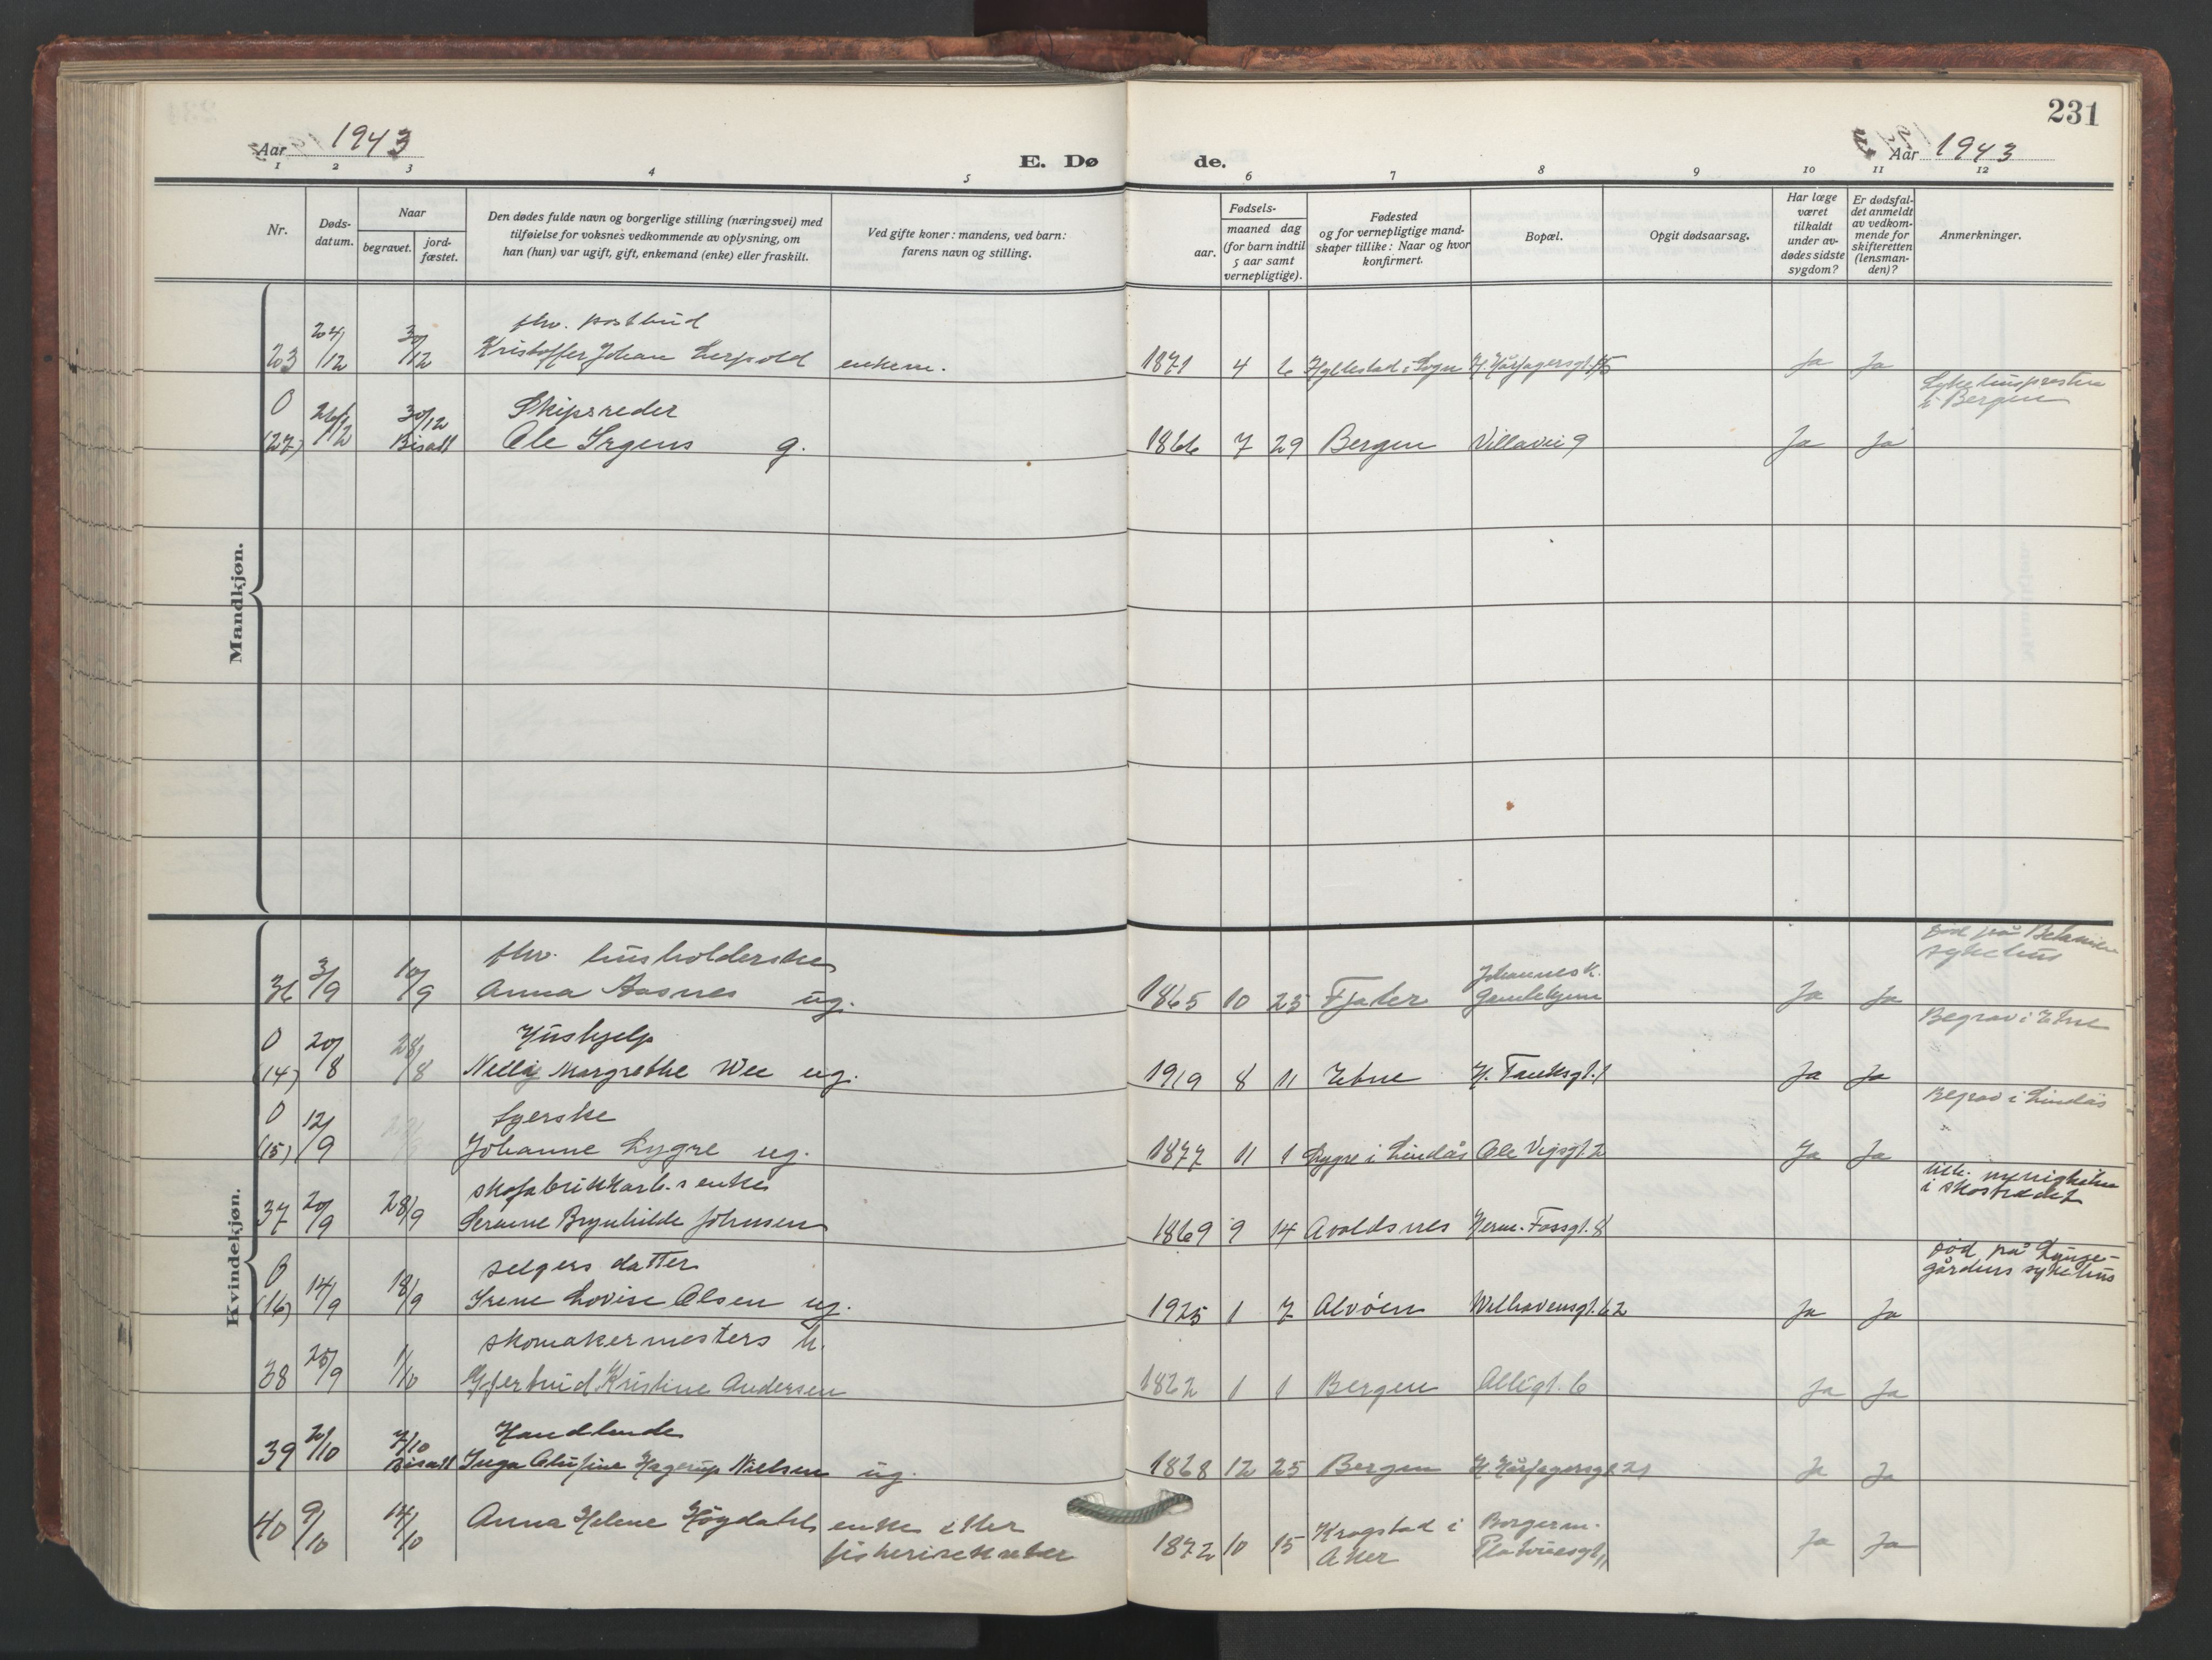 231
Aar 1943
E. Dø de.
Aar 1943
1 2 3 4 5 6 7 8 9 10 11 12
Nr.
Døds-
datum.
Naar
begravet.
jord-
fæstet.
Den dødes fulde navn og borgerlige stilling (næringsvei) med
tilføielse for voksnes vedkommende av oplysning, om
han (hun) var ugift, gift, enkemand (enke) eller fraskilt.
Ved gifte koner: mandens, ved barn:
farens navn og stilling.
Fødsels-
aar.
maaned dag
(for barn indtil
5 aar samt
vernepligtige).
Fødested
og for vernepligtige mand-
skaper tillike: Naar og hvor
konfirmert.
Bopæl.
Opgit dødsaarsag.
Har læge
været
tilkaldt
under av-
dødes sidste
sygdom?
Er dødsfal-
det anmeldt
av vedkom-
mende for
skifteretten
(lensman-
den)?
Anmerkninger.
Mandkjøn.
fhv. postbud
23 24/12 30/12 Kristoffer Johan Leipold enkem. 1871 4 6 Hyllestad i Sogn H. Hårfagersgt. 15 Ja Ja
Sykehuspresten
i Bergen
0 26/12 30/12 Skipsreder
(27) Bisatt Ole Irgens g. 1866 7 29 Bergen Villavei 9 Ja Ja
Kvindekjøn.
Død på Betanien
sykehus
fhv. husholderske
36 3/9 10/9 Anna Aasnes ug. 1865 10 25 Fjaler Johannesk.
Gamlehjem Ja Ja
Begrav i Etne
0 20/8 28/8 Hushjelp
(14) Nelly Margrethe Wee ug. 1919 8 11 Etne H. Tanksgt. 1 Ja Ja
Begrav i Lindås
0 12/9 Syerske
(15) Johanne Lygre ug. 1877 11 1 Lygre i Lindås Ole Vigsgt. 2 Ja Ja
menigheten
i Skostredet
skofabrikkarb.s enke
37 20/9 28/9 Serine Brynhilde Johnsen 1869 9 14 Avaldsnes Herm. Fossgt. 8
Død på Lunge-
gårdens sykehus
0 14/9 18/9 selgers datter
(16) Irene Lovise Olsen ug. 1925 1 7 Alvöen Welhavensgt. 62 Ja Ja
skomakermesters h.
38 25/9 1/10 Gjertrud Kristine Andersen 1862 1 1 Bergen Allégt. 6 Ja Ja
Handlende
39 2/10 7/10 Bisatt Inga Hagerup Nielsen ug. 1868 12 25 Bergen H. Hårfagersgt 21 Ja Ja
40 9/10 14/10 Anna Helene Høydahl enke etter
fiskerisekretær 1872 10 15 Krogstad i
Aker Borgerm.
Platousgt. 11 Ja Ja